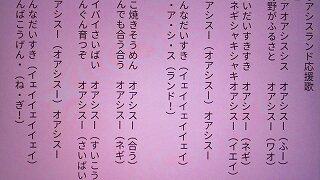 アシスランド応援歌
アオアシスシス　オアシスー（ふー）
野がふるさと　オアシスー（ワオ）
いだいすきすき　オアシスー（ネギ）
ネギシャキシャキオアシスー（イエイ）
アシスー（オアシスー）オアシスー
んなだいすき（イェイイェイイェイ）
・ア・シ・ス（ランド！）
こ焼きそうめん　オアシスー（合う）
んでも合う合う　オアシスー（ネギ）
イバイさいばい　オアシスー（すいこう
んぐん育つぞ　オアシスー（さいばい
アシスー（オアシスー）オアシスー
んなだいすき（イェイイェイイェイ）
んばろうげん・（ね・ぎ！）